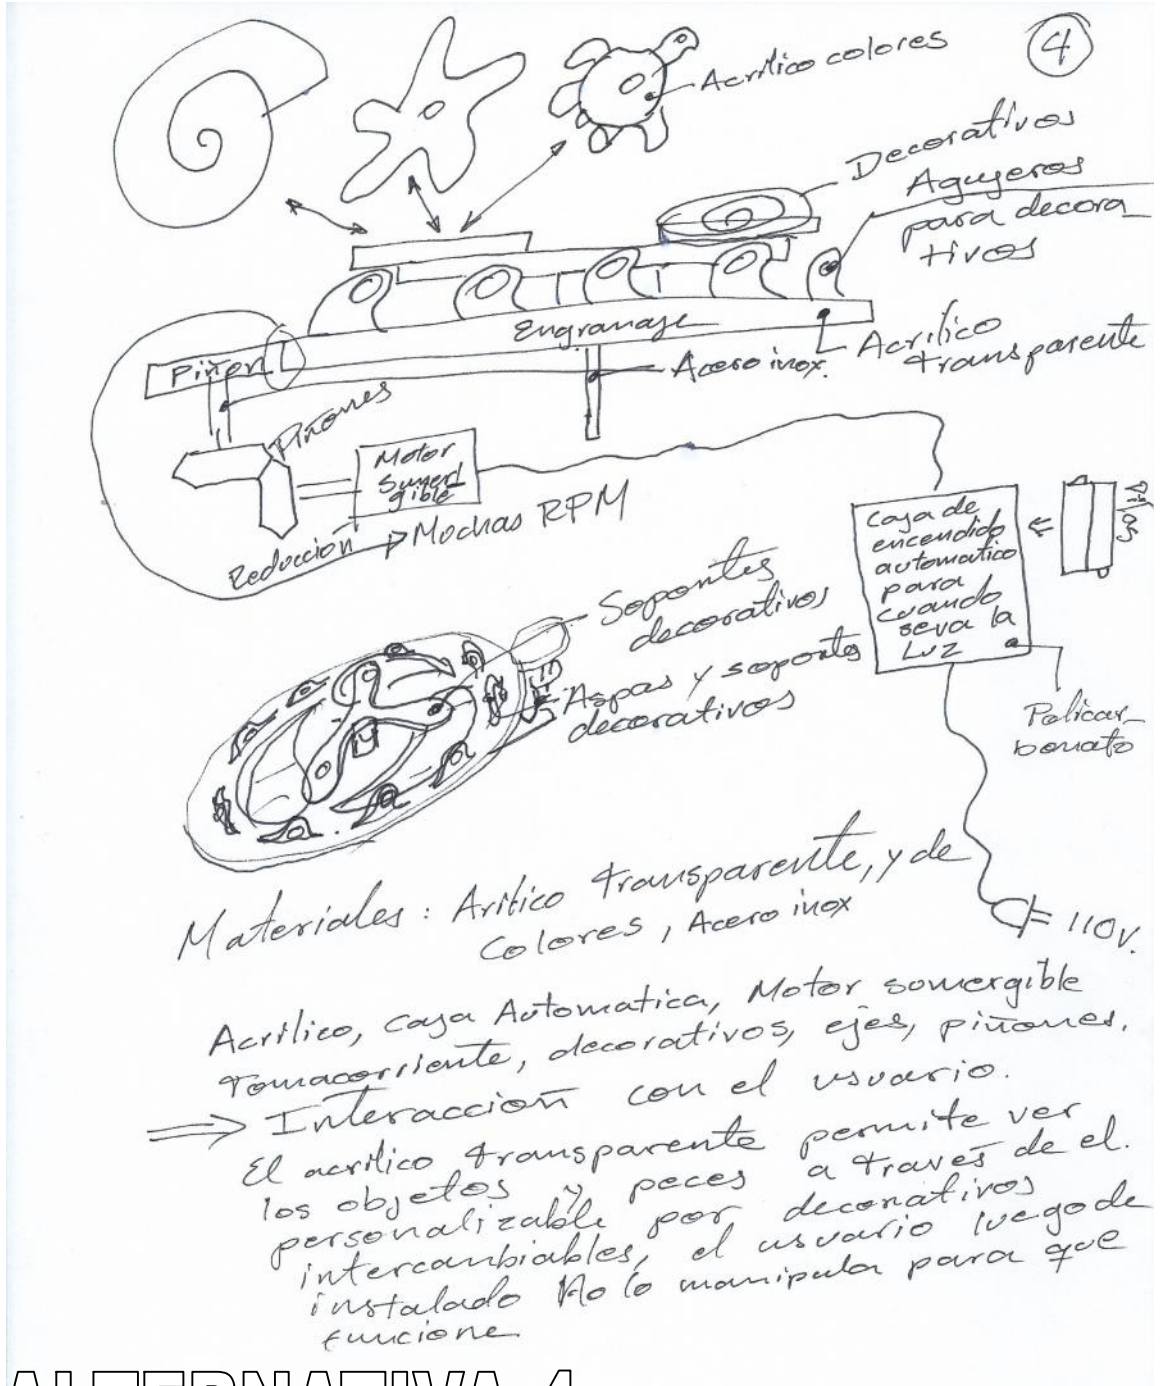 4
Acrílico colores
Decorativos
Agujeros
para decora_
tivos
Engranaje
Piñon
Acero inox.
Acrílico
transparente
Piñones
Motor
Sumer
gible
Reducción
Muchas RPM
Caja de
encendido
automatico
para
cuando
seva la
Luz
Soportes
decorativos
Aspas y soportes
decorativos
Policar_
bonato
Materiales: Arilico transparente, y de
colores, Acero inox
110V.
Acrílico, caja Automatica, Motor sumergible
Tomacorriente, decorativos, ejes, piñones.
⇒ Interacción con el usuario.
El acrílico transparente permite ver
los objetos y peces a través de el.
personalizable por decorativos
intercanbiables, el usuario luego de
instalado No lo manipula para que
funcione.
ALTERNATIVA 4